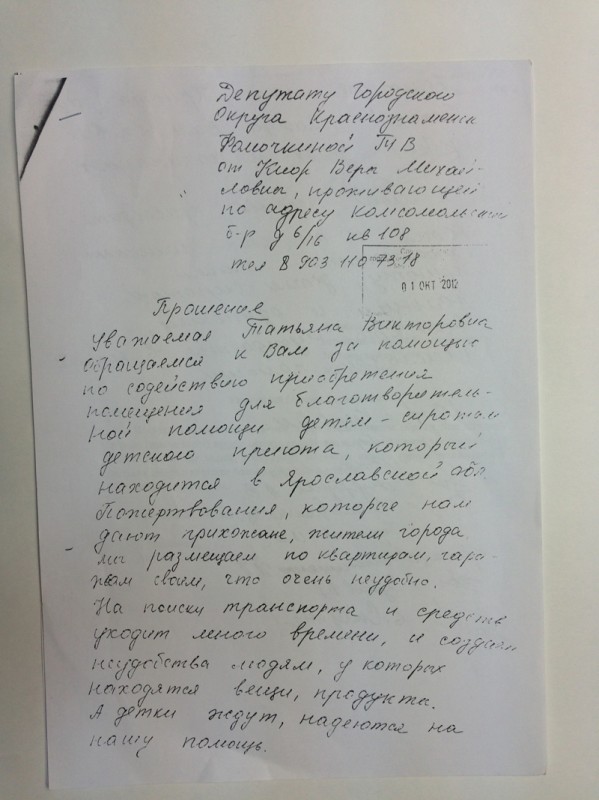 Депутату Городского
Округа Краснознаменск
Фомочкиной Т.В
от Кнор Веры Михай-
ловны, проживающей
по адресу Комсомольский
б-р д 6/16 кв 108
тел 8 903 110 73 18
01 ОКТ 2012
Прошение
Уважаемая Татьяна Викторовна
обращаемся к Вам за помощью
по содействию приобретения
помещения для благотворитель-
ной помощи детям-сиротам
детского приюта, который
находится в Ярославской обл.
Пожертвования, которые нам
дают прихожане, жители города
мы размещаем по квартирам, гара-
жам своим, что очень неудобно.
На поиски транспорта и средств
уходит много времени, и создаем
неудобства людям, у которых
находятся вещи, продукты.
А детки ждут, надеются на
нашу помощь.